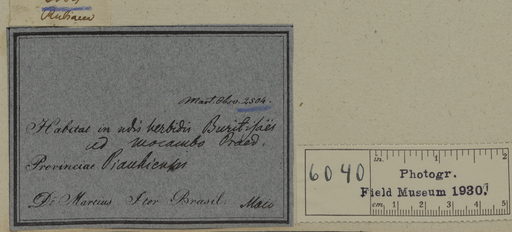 Mart. Obs. 2504.
Habitat in udis herbidis Buritisäes
ad mocambo Praed.
Provinciae Piauhiensis
Dr Martius Iter Brasil. Majo
6040
Photogr.
Field Museum 1930
in. 1 2
cm. 1 2 3 4 5